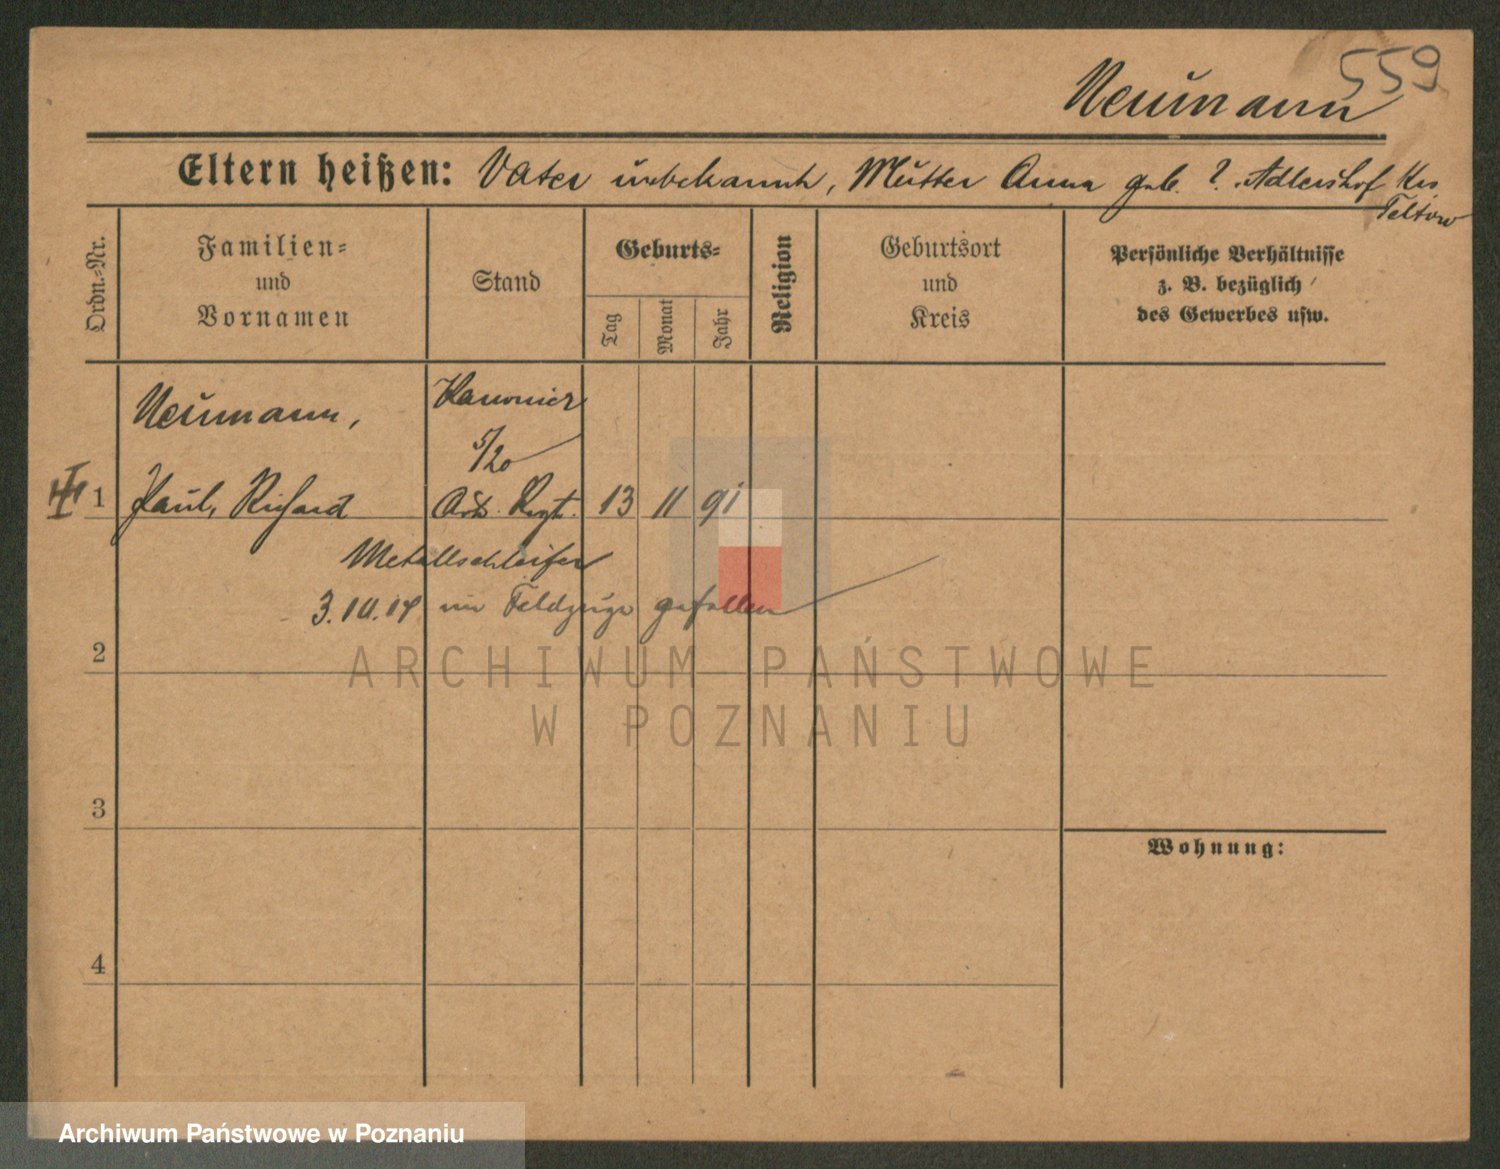 559
Neumann
Eltern heißen: Vater unbekannt, Mutter Anna geb. ? Adlershof Krs
Teltow
Ordn.-Nr.
Familien-
und
Vornamen
Stand
Geburts-
Tag
Monat
Jahr
Religion
Geburtsort
und
Kreis
Persönliche Verhältnisse
z. B. bezüglich
des Gewerbes usw.
Neumann,
Kanonier
5/20
1 Paul, Richard Art. Regt. 13 11 91
Metallschleifer
im Feldzuge gefallen
2
ARCHIWUM PAŃSTWOWE
W POZNANIU
3
Wohnung:
4
Archiwum Państwowe w Poznaniu